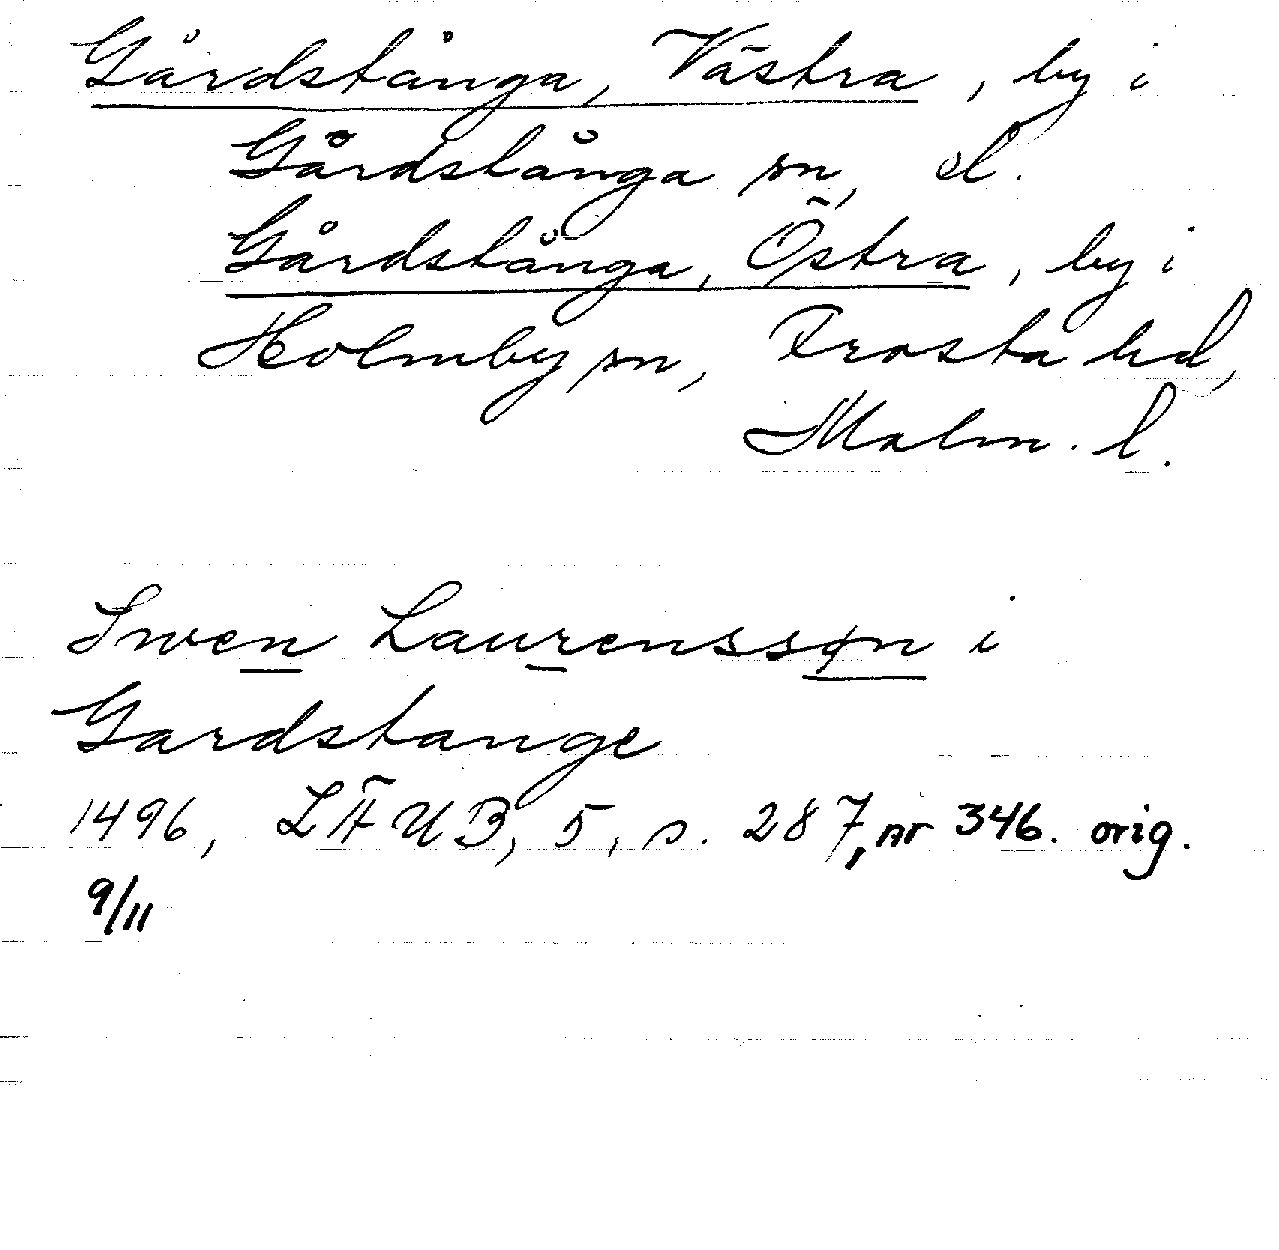 Gårdstånga, Västra, by i
Gårdstånga sn, el.
Gårdstånga, Östra, by i
Holmby sn, Frosta hd,
Malm. l.
Swen Laurenssøn i
Gardstange
1496, LÄUB, 5, s. 287, nr 346. orig.
9/11